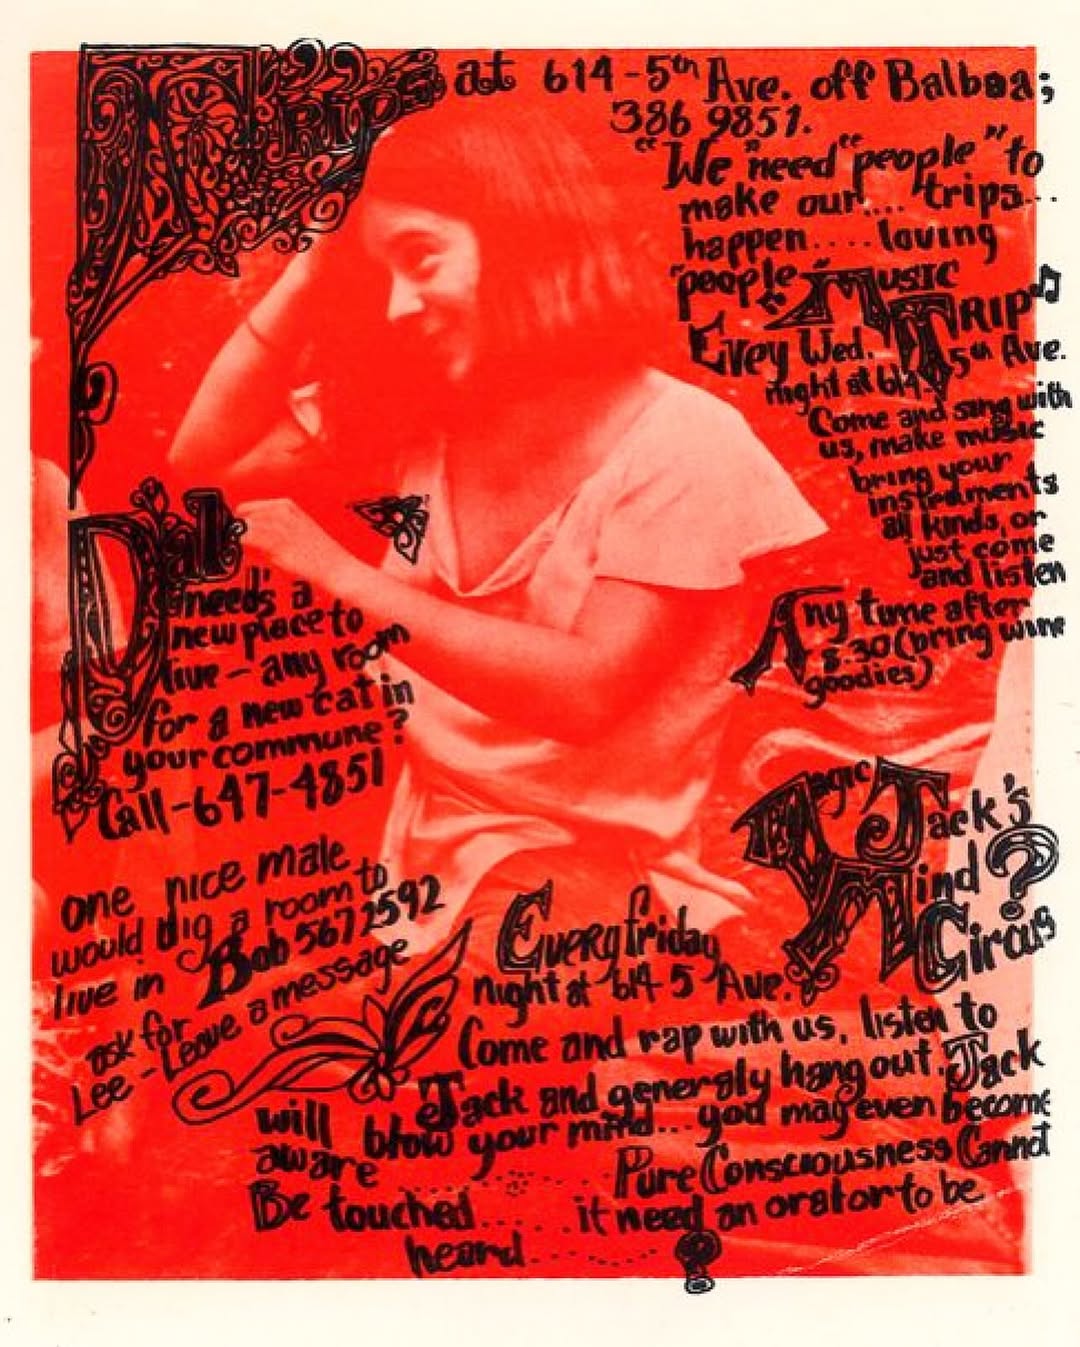 Trips at 614-5th Ave. off Balboa;
386 9851.
"We "need "people" to
make our.... trips...
happen.... loving
"people."
Music
Trip ♫
Evey Wed.
night at 614-5th Ave.
Come and sing with
us, make music
bring your
instruments
all kinds, or
just come
and listen
Any time after
8:30 (bring wine
goodies)
Dal
need's a
new place to
live - any room
for a new cat in
your commune?
Call - 647-4851
one nice male
would dig a room to
live in Bob 567 2592
ask for
Lee - Leave a message
Magic Jack's
Mind ?
Circus
Every friday
night at 614 5 Ave.
Come and rap with us, listen to
Jack and generaly hang out. Jack
will blow your mind... you may even become
aware ........... Pure Consciousness Cannot
Be touched...... it need an orator to be
heard........?